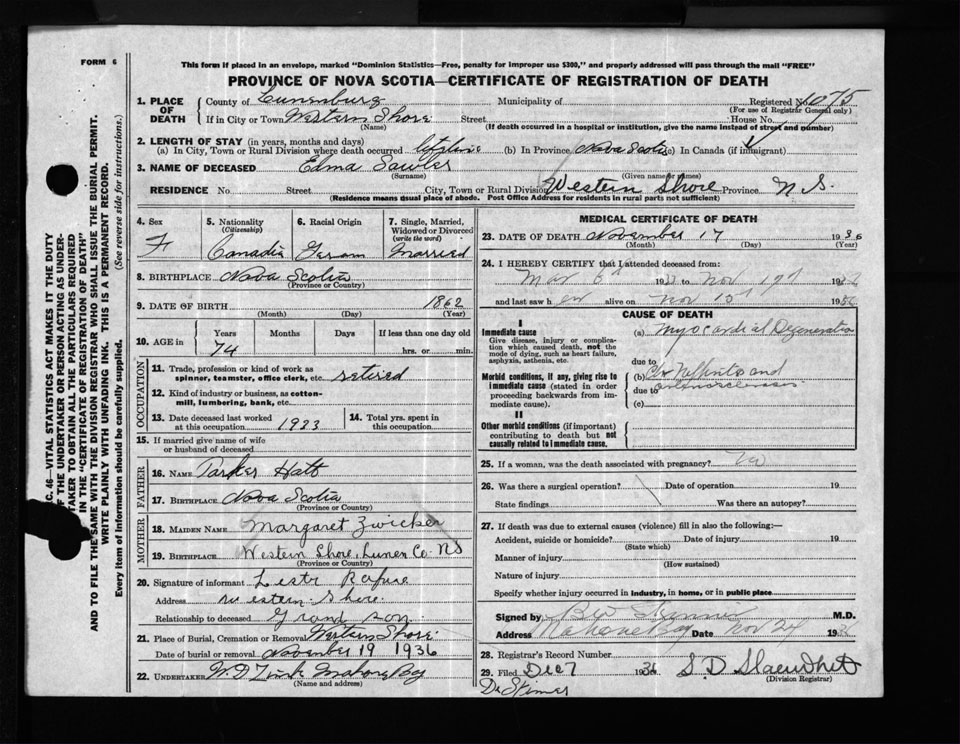 FORM 6
This form if placed in an envelope, marked "Dominion Statistics—Free, penalty for improper use $300," and properly addressed will pass through the mail "FREE"
PROVINCE OF NOVA SCOTIA—CERTIFICATE OF REGISTRATION OF DEATH
1. PLACE OF DEATH
County of Lunenburg Municipality of Registered No. 1075
(For use of Registrar General only)
If in City or Town Western Shore Street House No.
(Name) (If death occurred in a hospital or institution, give the name instead of street and number)
2. LENGTH OF STAY (in years, months and days)
(a) In City, Town or Rural Division where death occurred (b) In Province Nova Scotia (c) In Canada (if immigrant)
3. NAME OF DECEASED Edna Sawler
(Surname) (Given name or names)
RESIDENCE No. Street City, Town or Rural Division Western Shore Province N. S.
(Residence means usual place of abode. Post Office Address for residents in rural parts not sufficient)
4. Sex
F
5. Nationality
(Citizenship)
Canadia
6. Racial Origin
7. Single, Married, Widowed or Divorced
(write the word)
Married
8. BIRTHPLACE Nova Scotia
(Province or Country)
9. DATE OF BIRTH 1862
(Month) (Day) (Year)
10. AGE in
Years Months Days If less than one day old
74 hrs. or min.
OCCUPATION
11. Trade, profession or kind of work as spinner, teamster, office clerk, etc. retired
12. Kind of industry or business, as cotton-mill, lumbering, bank, etc.
13. Date deceased last worked at this occupation 1933
14. Total yrs. spent in this occupation
15. If married give name of wife or husband of deceased
FATHER
16. NAME Parker Hatt
17. BIRTHPLACE Nova Scotia
(Province or Country)
MOTHER
18. MAIDEN NAME Margaret Zwicker
19. BIRTHPLACE Western Shore, Lunen Co. NS
(Province or Country)
20. Signature of informant Lestr Rafuse
Address western Shore
Relationship to deceased Grand son
21. Place of Burial, Cremation or Removal Western Shore
Date of burial or removal November 19 1936
22. UNDERTAKER W. D Zink Mahone Bay
(Name and address)
MEDICAL CERTIFICATE OF DEATH
23. DATE OF DEATH November 17 1936
(Month) (Day) (Year)
24. I HEREBY CERTIFY that I attended deceased from:
Mar 6th 193 to Nov 193
and last saw her alive on Nov 1936
CAUSE OF DEATH
I
Immediate cause
Give disease, injury or complication which caused death, not the mode of dying, such as heart failure, asphyxia, asthenia, etc.
(a) Myocardial Degeneration
due to
Morbid conditions, if any, giving rise to immediate cause (stated in order proceeding backwards from immediate cause).
(b) Chr Nephritis and
due to arteriosclerosis
(c)
II
Other morbid conditions (if important) contributing to death but not causally related to immediate cause.
25. If a woman, was the death associated with pregnancy? No
26. Was there a surgical operation? Date of operation 19
State findings Was there an autopsy?
27. If death was due to external causes (violence) fill in also the following:—
Accident, suicide or homicide? Date of injury 19
(State which)
Manner of injury
(How sustained)
Nature of injury
Specify whether injury occurred in industry, in home, or in public place
Signed by M.D.
Address Mahone Bay Date Nov 193
28. Registrar's Record Number
29. Filed Dec 7 1936 S. D
(Division Registrar)
C. 46—VITAL STATISTICS ACT MAKES IT THE DUTY
OF THE UNDERTAKER OR PERSON ACTING AS UNDER-
TAKER TO OBTAIN ALL THE PARTICULARS REQUIRED
IN THE "CERTIFICATE OF REGISTRATION OF DEATH"
AND TO FILE THE SAME WITH THE DIVISION REGISTRAR WHO SHALL ISSUE THE BURIAL PERMIT.
WRITE PLAINLY WITH UNFADING INK. THIS IS A PERMANENT RECORD.
Every item of Information should be carefully supplied. (See reverse side for instructions.)